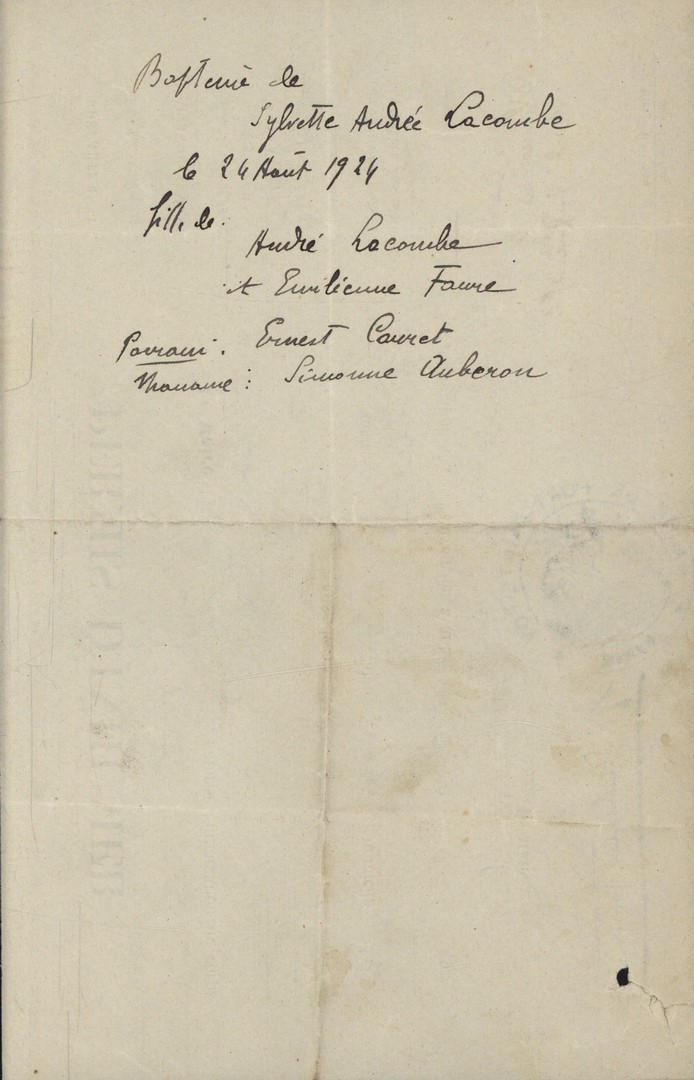 Baptême de
Sylvette Andrée Lacombe
le 24 Août 1924
fille de
André Lacombe
et Emilienne Faure
Parrain : Ernest Carret
Marraine : Simonne Auberon
PERMIS D'INHUMER